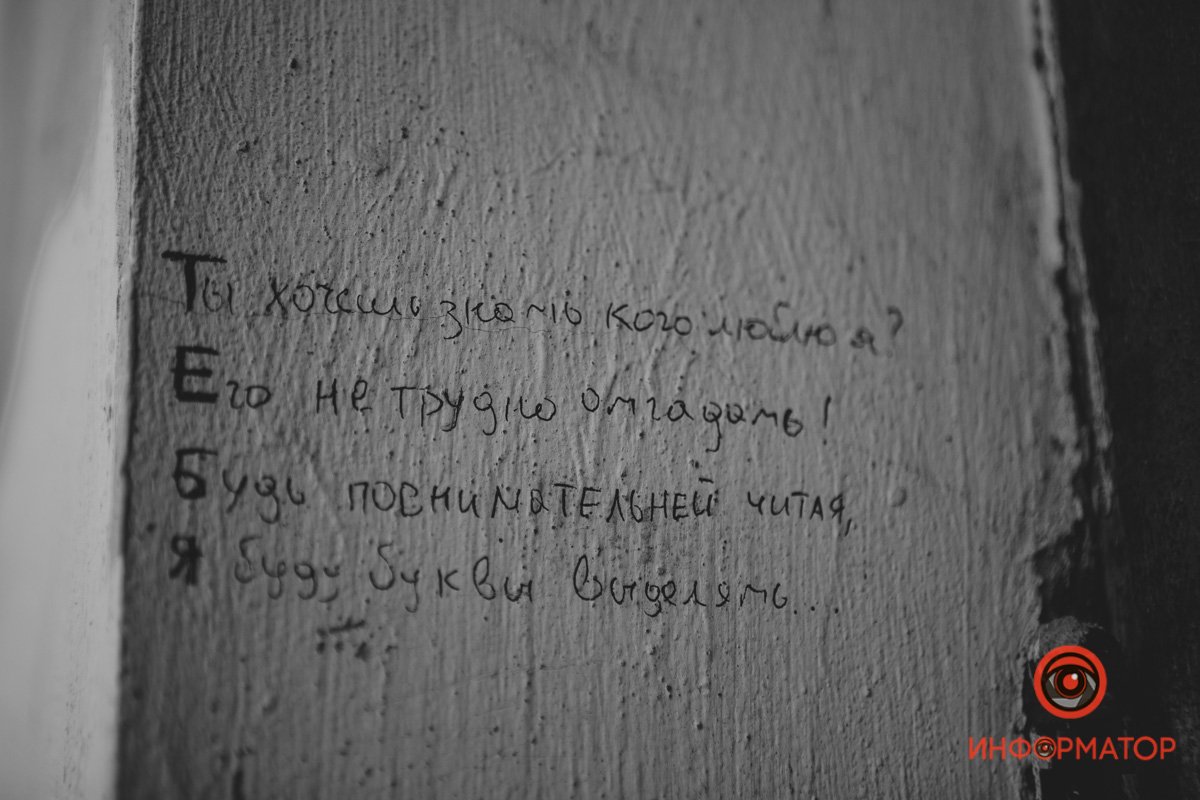 Ты хочешь знать кого люблю я?
Его не трудно отгадать!
Будь повнимательней читая,
Я буду буквы выделять...
ИНФОРМАТОР